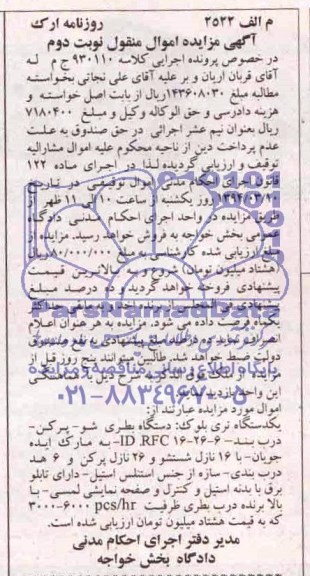 م الف ۲۵۲۲ روزنامه ارک
آگهی مزایده اموال منقول نوبت دوم
در خصوص پرونده اجرایی کلاسه ۹۳۰۱۱۰ ج م له
آقای قربان اریان و بر علیه آقای علی نجاتی بخواسته
مطالبه مبلغ ۱۴۳۶۰۸۰۳۰ ریال از بابت اصل خواسته و
هزینه دادرسی و حق الوکاله وکیل و مبلغ ۷۱۸۰۴۰۰
ریال بعنوان نیم عشر اجرائی در حق صندوق به علت
عدم پرداخت دین از ناحیه محکوم علیه اموال مشارالیه
توقیف و ارزیابی گردیده لذا در اجرای ماده ۱۲۲
قانون اجرای احکام مدنی اموال توقیفی در تاریخ
روز یکشنبه از ساعت ۱۰ الی ۱۱ ظهر از
طریق مزایده در واحد اجرای احکام مدنی دادگاه
عمومی بخش خواجه به فروش خواهد رسید. مزایده از
مبلغ ارزیابی شده کارشناسی به مبلغ ریال
(هشتاد میلیون تومان) شروع و به بالاترین قیمت
پیشنهادی فروخته خواهد گردید و ده درصد مبلغ
پیشنهادی فی المجلس از برنده اخذ و به مابقی حداکثر
یکماه فرصت داده می شود. مزایده به هر عنوان اعلام
انصراف نماید ده درصد مبلغ پیشنهادی به نفع صندوق
دولت ضبط خواهد شد. طالبین میتوانند پنج روز قبل از
مزایده از ملک فوق الذکر به شرح ذیل با هماهنگی
این واحد بازدید نمایند.
اموال مورد مزایده عبارتند از:
یکدستگاه تری بلوک: دستگاه بطری شو- پرکن-
درب بند- ID .RFC ۱۶-۲۶-۶- به مارک ایده
جویان- با ۱۶ نازل شستشو و ۲۶ نازل پرکن و ۶ هد
درب بندی- سازه از جنس استنلس استیل- دارای تابلو
برق با بدنه استیل و کنترل و صفحه نمایشی لمسی- با
بالا برنده درب بطری ظرفیت ۳۰۰۰-۶۰۰۰ pcs/hr
که به قیمت هشتاد میلیون تومان ارزیابی شده است.
مدیر دفتر اجرای احکام مدنی
دادگاه بخش خواجه
ParsNamadData
پایگاه اطلاع رسانی مناقصه و مزایده
۰۲۱-۸۸۳۴۹۶۷۰